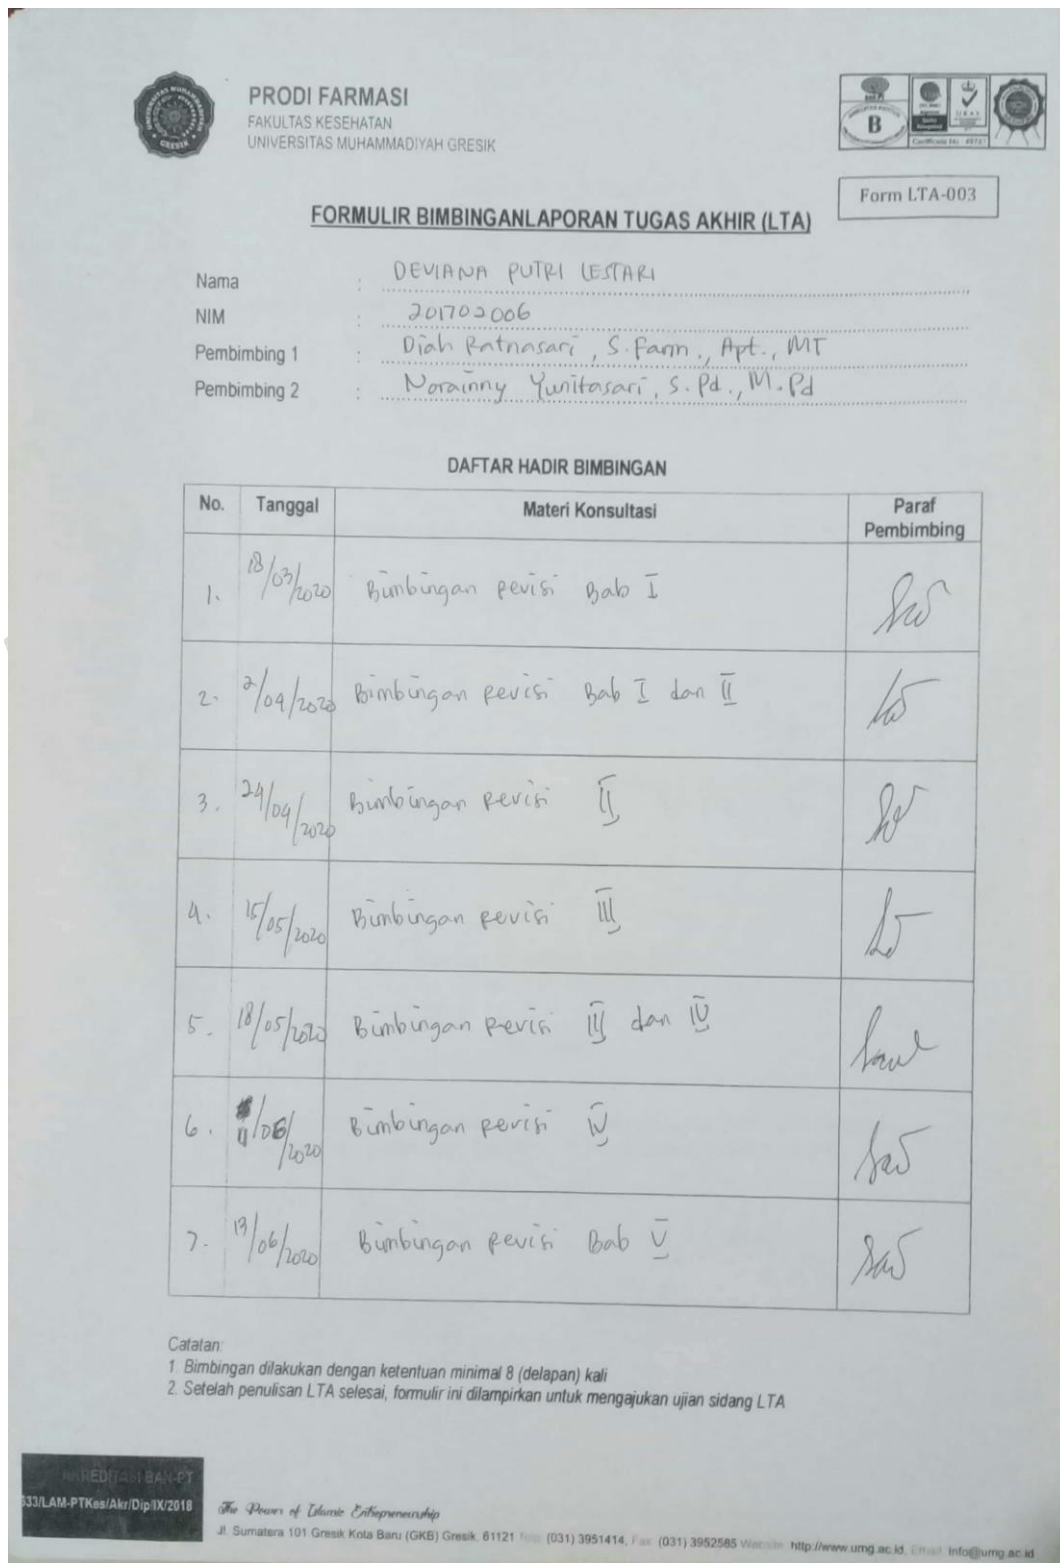 PRODI FARMASI
FAKULTAS KESEHATAN
UNIVERSITAS MUHAMMADIYAH GRESIK
B
UKAS
Form LTA-003
FORMULIR BIMBINGANLAPORAN TUGAS AKHIR (LTA)
Nama : DEVIANA PUTRI LESTARI
NIM : 201702006
Pembimbing 1 : Diah Ratnasari, S.Farm., Apt., MT
Pembimbing 2 : Norainny Yunitasari, S.Pd., M.Pd
DAFTAR HADIR BIMBINGAN
No. Tanggal Materi Konsultasi Paraf Pembimbing
1. 18/03/2020 Bimbingan revisi Bab I
2. 2/04/2020 Bimbingan revisi Bab I dan II
3. 24/04/2020 Bimbingan revisi II
4. 15/05/2020 Bimbingan revisi III
5. 18/05/2020 Bimbingan revisi III dan IV
6. 11/06/2020 Bimbingan revisi IV
7. 13/06/2020 Bimbingan revisi Bab V
Catatan:
1. Bimbingan dilakukan dengan ketentuan minimal 8 (delapan) kali
2. Setelah penulisan LTA selesai, formulir ini dilampirkan untuk mengajukan ujian sidang LTA
AKREDITASI BAN-PT
333/LAM-PTKes/Akr/Dip/IX/2018
The Power of Islamic Entrepreneurship
Jl. Sumatera 101 Gresik Kota Baru (GKB) Gresik, 61121 Telp. (031) 3951414, Fax. (031) 3952585 Website: http://www.umg.ac.id, Email: info@umg.ac.id